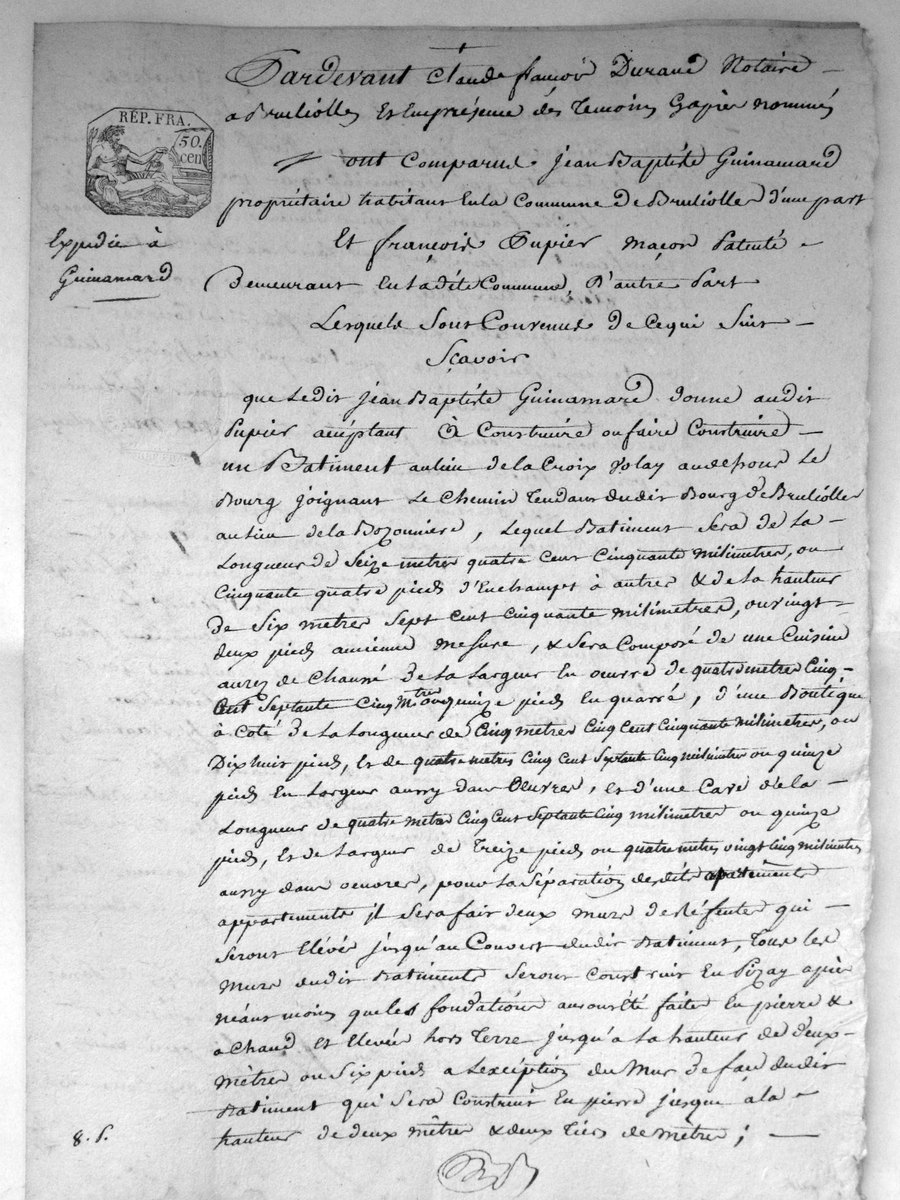 Pardevant Claude françois Durand Notaire
a Bruliolles et En présence des Temoins Cyaprès nommés
RÉP. FRA.
50.
cen
ont Comparus Jean Baptiste Guinamard
propriétaire habitant En la Commune de Bruliolles d'une part
Expédié à
Guinamard
Et françois Pupier maçon Patenté
Demeurant En Ladite Commune, D'autre Part
Lesquels Sont Convenus de Ce qui Suit
Sçavoir
que Ledit Jean Baptiste Guinamard donne audit
Pupier acceptant à Construire ou faire Construire
un Batiment au lieu de la Croix Volay au dessous Le
Bourg joignant Le Chemin Tendant dudit Bourg de Brulioller
au Lieu de la Bozonniere, Lequel Batiment Sera de La
Longueur de Seize mètres quatre Cent Cinquante milimetres, ou
Cinquante quatre pieds d'Enchampt à autres & de La hauteur
de Six mètres Sept Cent Cinquante milimetres, ou vingt
deux pieds ancienne mesure, & Sera Composé de une Cuisine
au rez de Chaussé de La Largeur En oeuvre de quatre metres Cinq
Cent Septante Cinq M.tres ou quinze pieds En quarré, d'une Boutique
à Coté de La Longueur de Cinq mètres Cinq Cent Cinquante milimetres, ou
Dix huit pieds, Et de quatre metres Cinq Cent Septante Cinq milimetres ou quinze
pieds En Largeur aussy dans Oeuvres, Et d'une Cave de la
Longueur de quatre mètres Cinq Cent Septante Cinq milimetres ou quinze
pieds, Et de Largeur de Treize pieds ou quatre metres vingt Cinq milimetres
aussy dans oeuvres, pour La Séparation desdits apartements
appartements il Sera fait deux murs de Réfente qui
Seront Elévés jusqu'au Couvert dudit Batiment, Tous Les
murs dudit Batiments Seront Construit En Pizay après
néant moins que les fondations auront été faite En pierre &
a Chaud Et Elevées hors Terre jusqu'à La hauteur de deux
mètres ou Six pieds a L'exception du Mur de face dudit
Batiment qui Sera Construit En pierre jusque à la
hauteur de deux mètres & deux Tiers de mètre;
8. f.